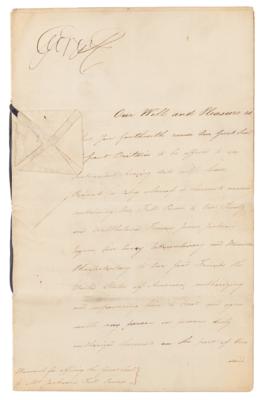 George R
Our Will and Pleasure is
that you forthwith cause Our Great Seal
of Great Britain to be affixed to an
Instrument bearing date with these
Presents a Copy whereof is hereunto annexed
containing Our Full Power to Our Trusty
and Wellbeloved
Esquire Our Envoy Extraordinary and Minister
Plenipotentiary to Our good Friends the
United States of America, authorizing
and empowering him to treat and agree
with any person or persons duly
authorized thereunto on the part of Our
said
Warrant for affixing the Great Seal
to Mr Jackson's Full Power